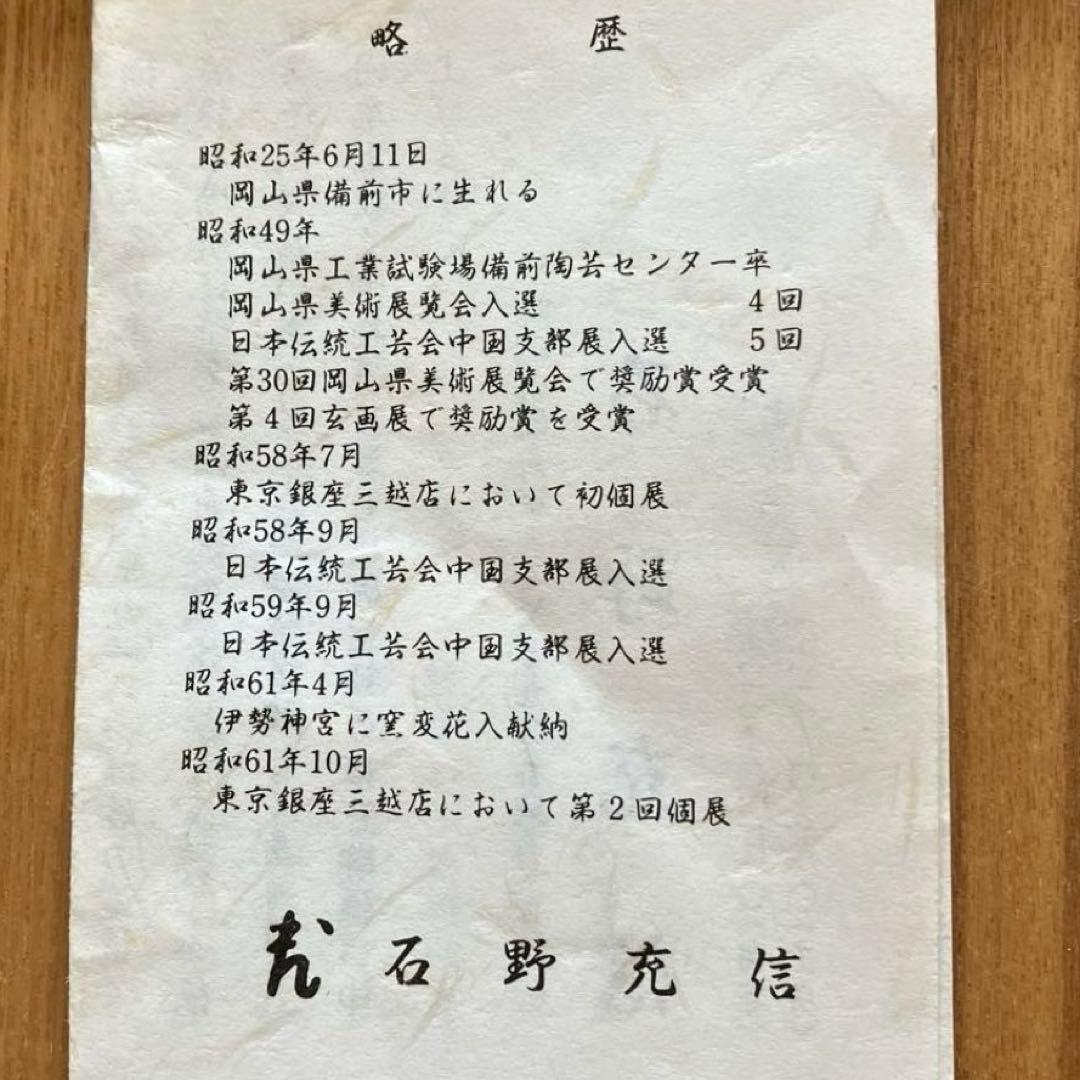 略歴
昭和25年6月11日
岡山県備前市に生れる
昭和49年
岡山県工業試験場備前陶芸センター卒
岡山県美術展覧会入選 4回
日本伝統工芸会中国支部展入選 5回
第30回岡山県美術展覧会で奨励賞受賞
第4回玄画展で奨励賞を受賞
昭和58年7月
東京銀座三越店において初個展
昭和58年9月
日本伝統工芸会中国支部展入選
昭和59年9月
日本伝統工芸会中国支部展入選
昭和61年4月
伊勢神宮に窯変花入献納
昭和61年10月
東京銀座三越店において第2回個展
石野充信